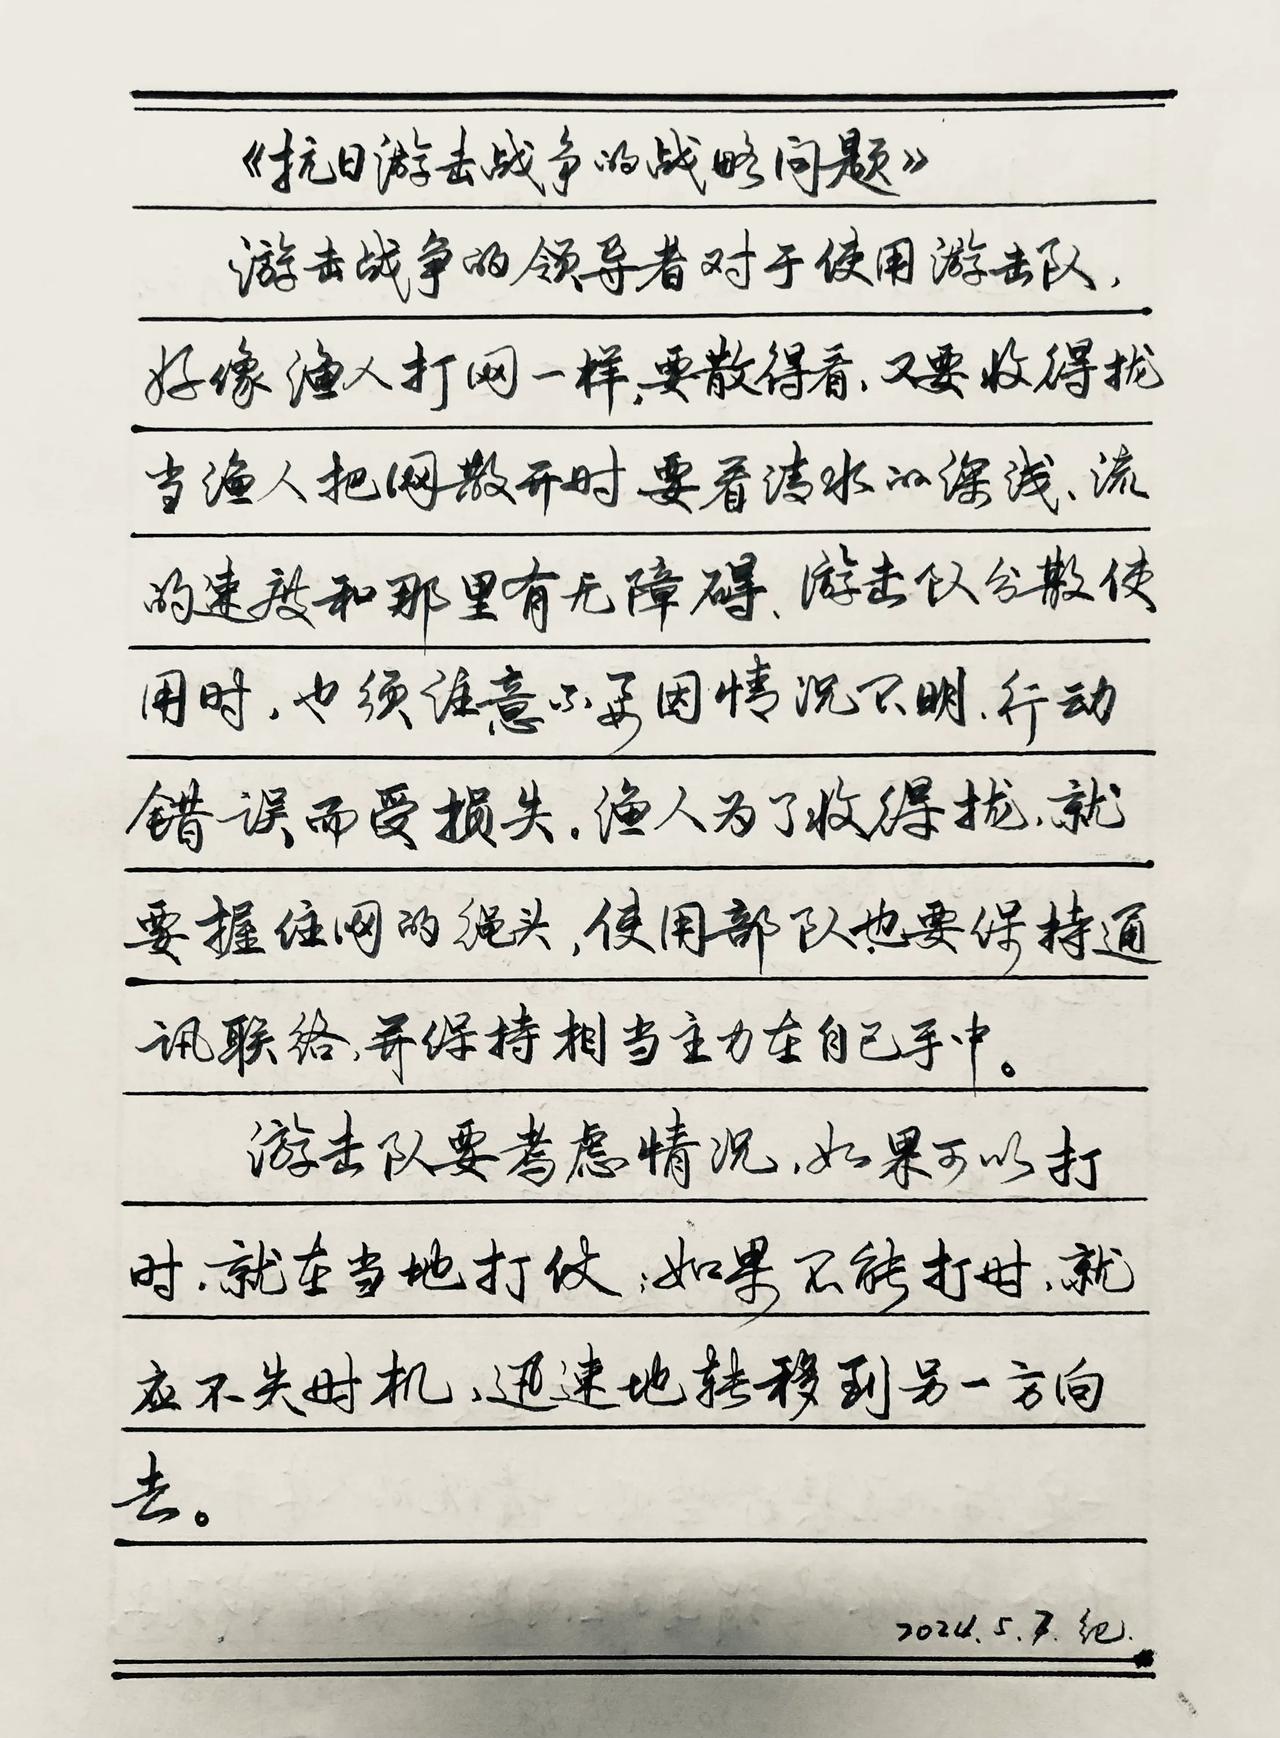 《抗日游击战争的战略问题》
游击战争的领导者对于使用游击队,
好像渔人打网一样,要散得看、又要收得拢
当渔人把网散开时要看清水的深浅、流
的速度和那里有无障碍、游击队分散使
用时,也须注意不要因情况不明、行动
错误而受损失。渔人为了收得拢、就
要握住网的绳头,使用部队也要保持通
讯联络,并保持相当主力在自己手中。
游击队要考虑情况,如果可以打
时、就在当地打仗;如果不能打时、就
应不失时机、迅速地转移到另一方向
去。
2024.5.7.纪.